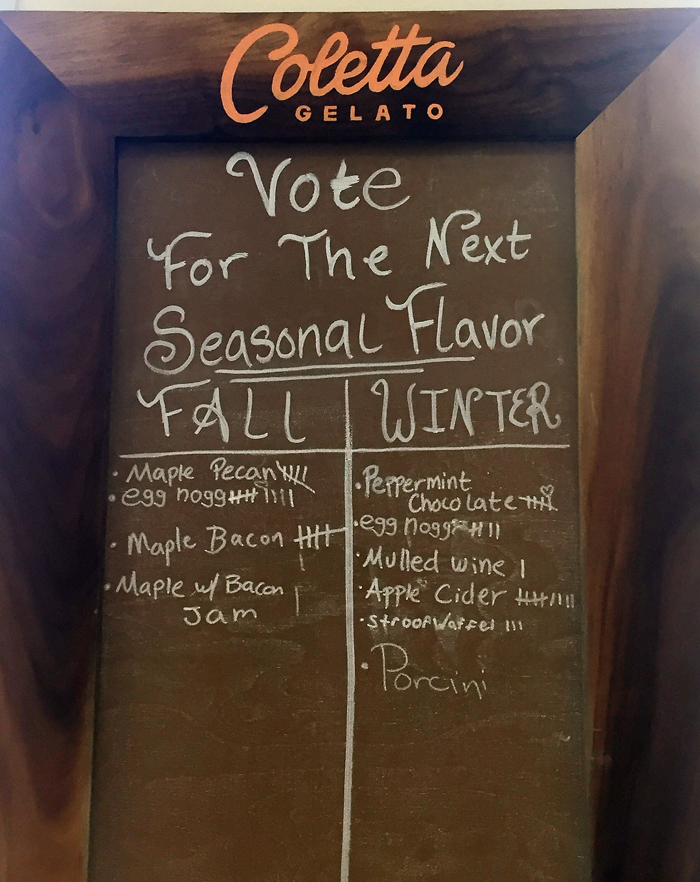 Coletta
GELATO
Vote
For The Next
Seasonal Flavor
FALL
• Maple Pecan
• egg nogg
• Maple Bacon
• Maple w/ Bacon
Jam
WINTER
• Peppermint
Chocolate
• egg nogg
• Mulled wine
• Apple Cider
• stroopwaffel
• Porcini